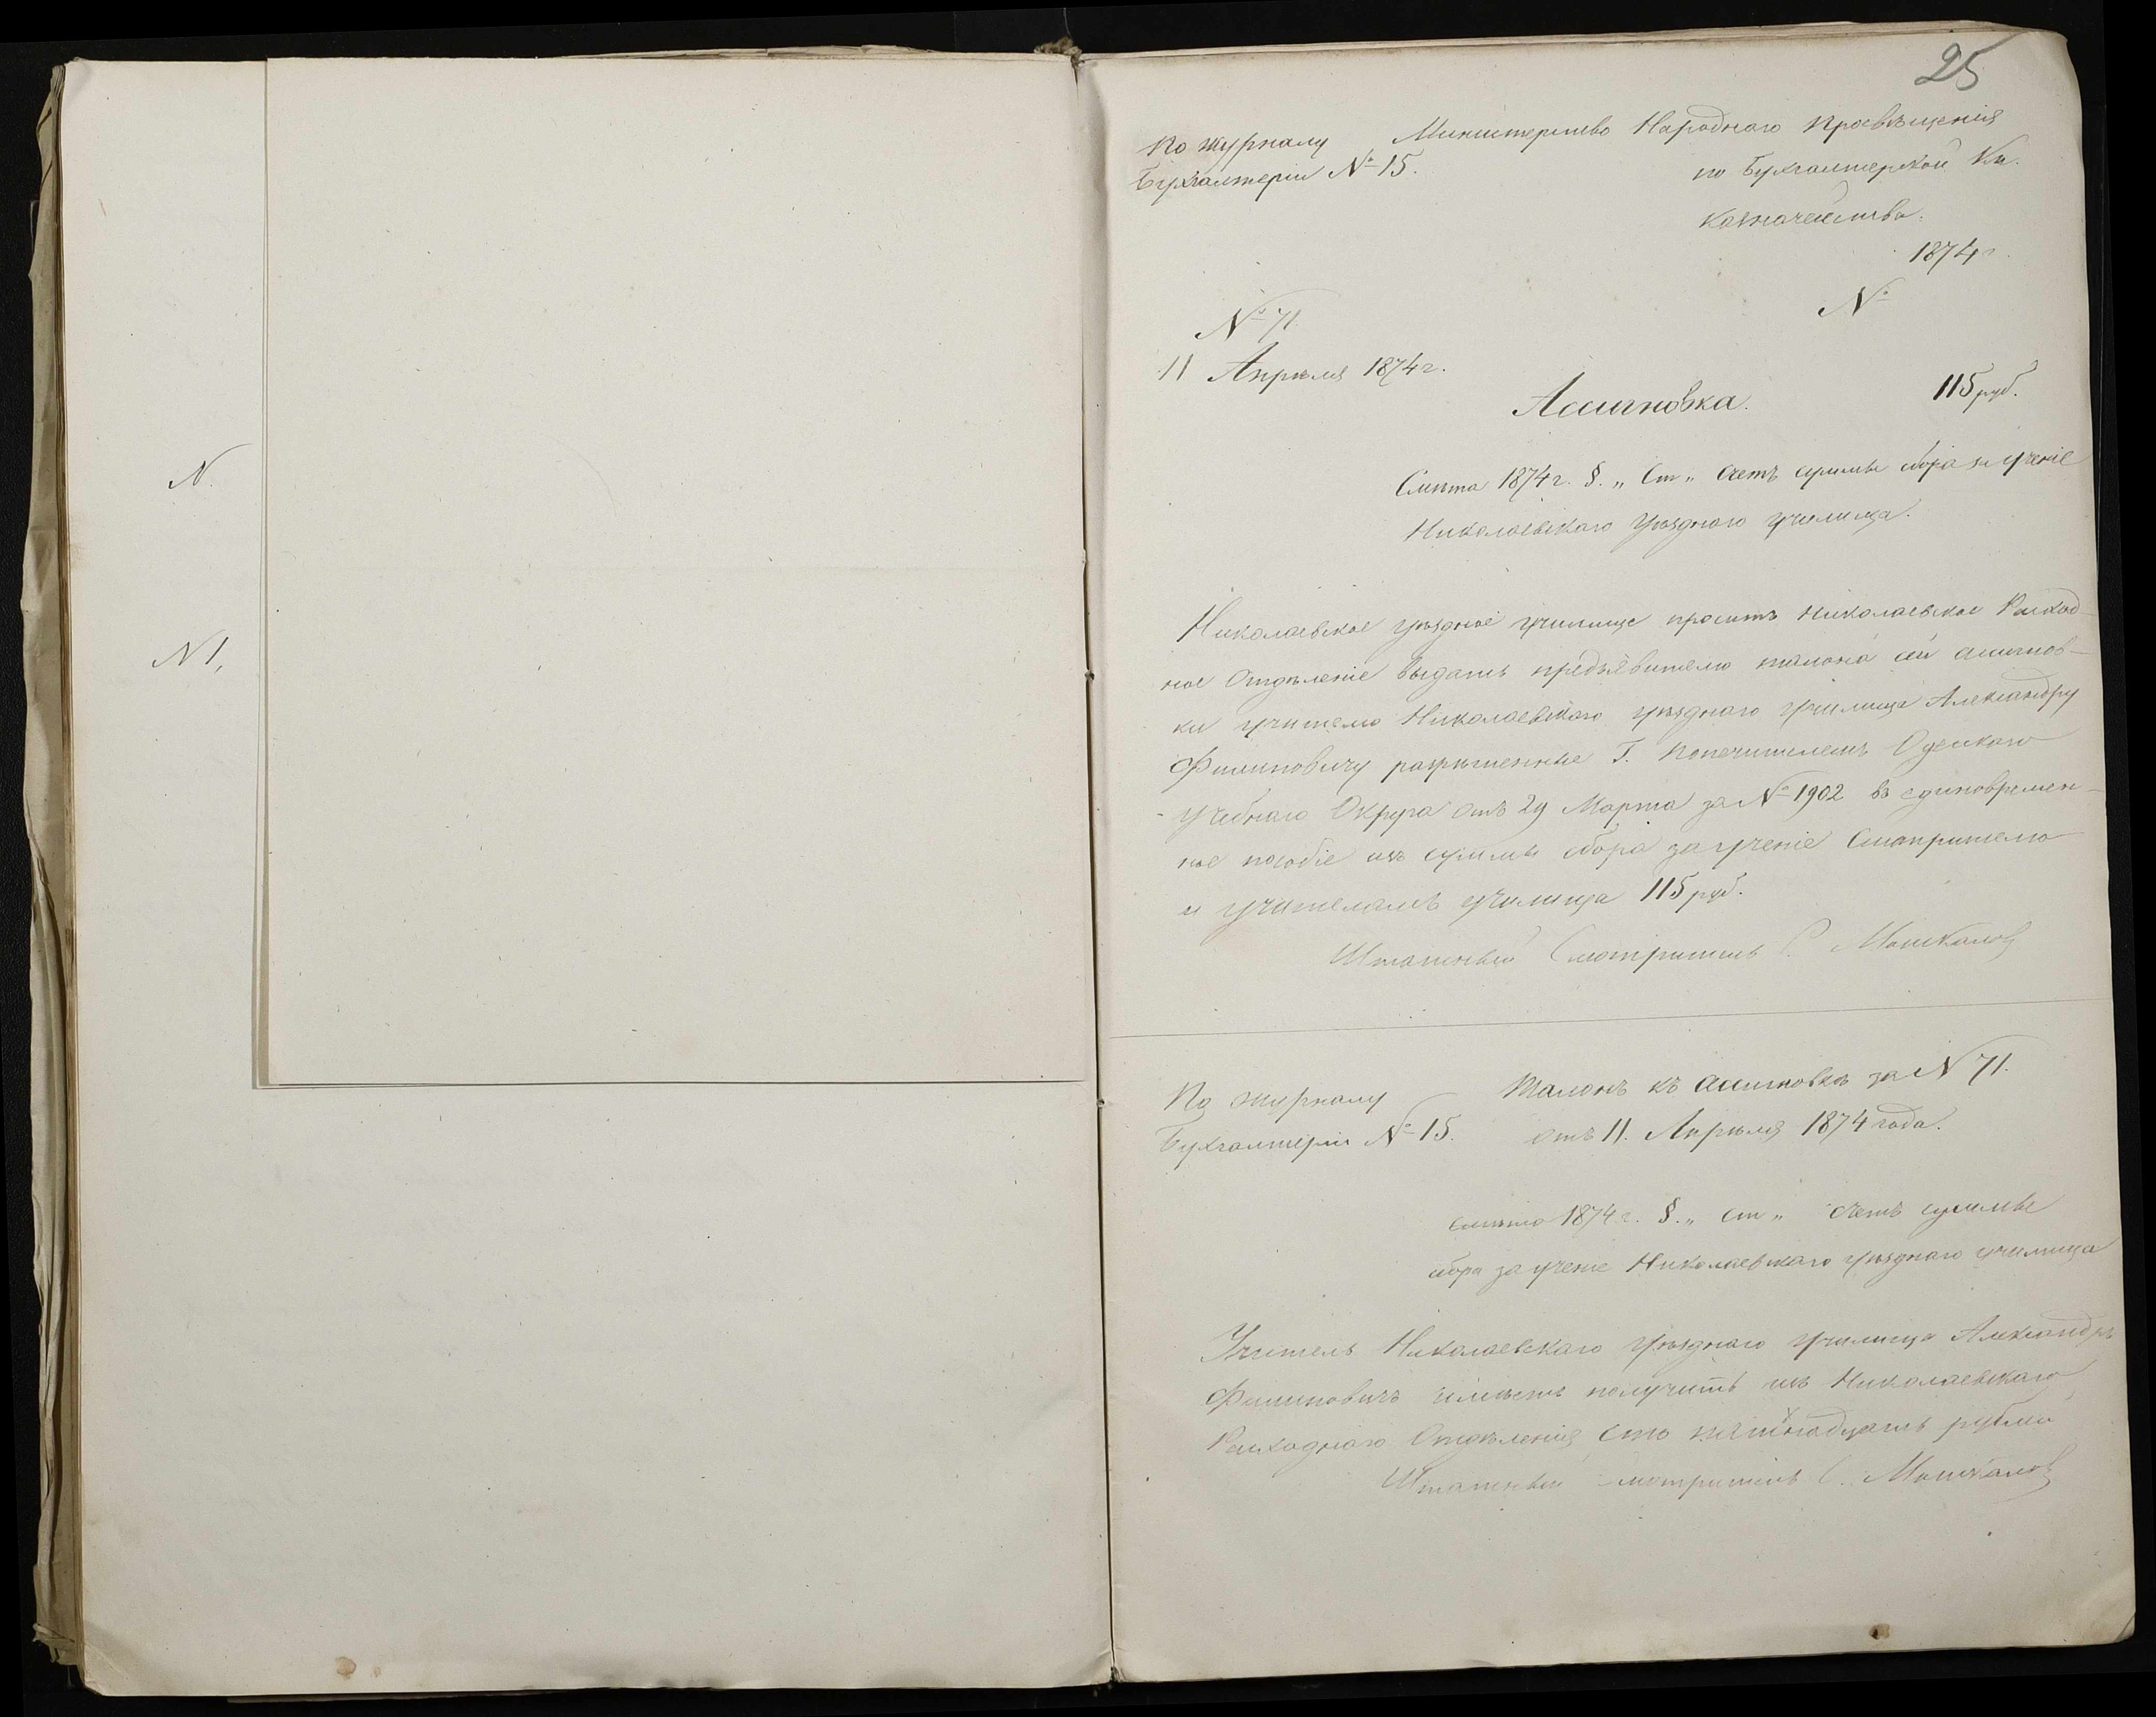 N.
N 1,
25
По журналу
Бухгалтеріи № 15.
Министерство Народнаго Просвѣщенія
по Бухгалтерской Кн.
Казначейства.
1874 г.
№
№ 71
11 Апрѣля 1874 г.
Ассигновка.
115 руб.
Смѣта 1874 г. §. „ Ст „ Счетъ суммы сбора за ученіе
Николаевскаго Уѣзднаго училища.
Николаевское уѣздное училище проситъ Николаевское Расход-
ное Отдѣленіе выдать предъявителю талона сей ассигнов-
ки учителю Николаевскаго уѣзднаго училища Александру
Филиповичу разрѣшенные Г. Попечителемъ Одесскаго
Учебнаго Округа отъ 29 Марта за № 1902 въ единовремен-
ное пособіе изъ суммы сбора за ученіе Смотрителю
и учителямъ училища 115 руб.
Штатный Смотритель С. Машкалов
По журналу
Бухгалтеріи № 15.
Талонъ къ ассигновкѣ за N 71.
отъ 11. Апрѣля 1874 года.
смѣта 1874 г. §. „ ст „ счетъ суммы
сбора за ученіе Николаевскаго уѣзднаго училища
Учитель Николаевскаго уѣзднаго училища Александръ
Филиповичъ имѣетъ получить изъ Николаевскаго
Расходнаго Отдѣленія сто пятнадцать рублей
Штатный смотритель С. Машкалов